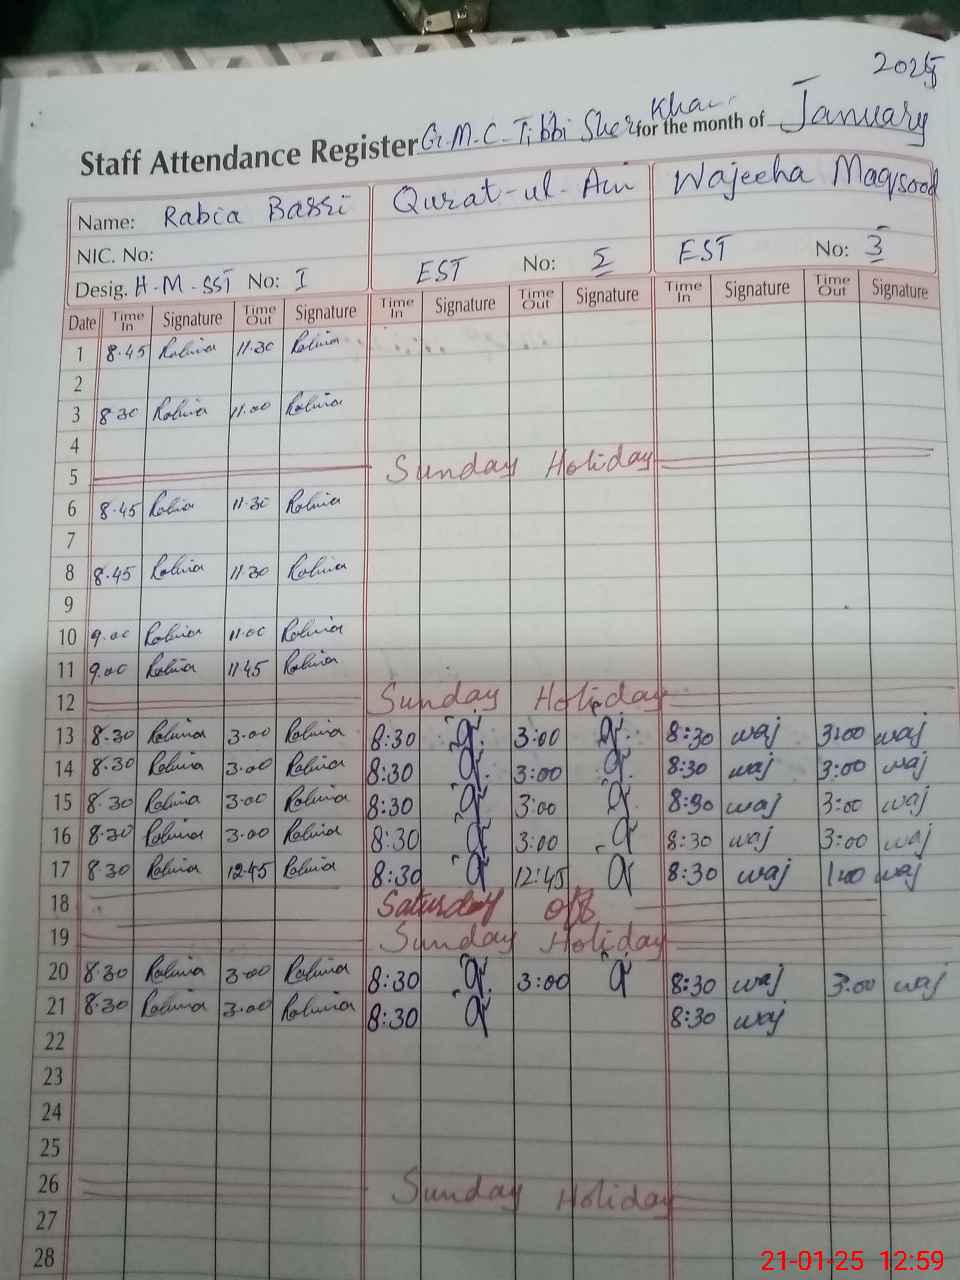 2025
Staff Attendance Register G.M.C. Tibbi Sher Khan for the month of January
Name: Rabia Bassi Qurat-ul-Ain Wajeeha Maqsood
NIC. No:
Desig. H.M-SST No: 1 EST No: 2 EST No: 3
Date Time In Signature Time Out Signature Time In Signature Time Out Signature Time In Signature Time Out Signature
1 8.45 Rabia 11.30 Rabia
2
3 8.30 Rabia 11.00 Rabia
4
5 Sunday Holiday
6 8.45 Rabia 11.30 Rabia
7
8 8.45 Rabia 11.30 Rabia
9
10 9.00 Rabia 11.00 Rabia
11 9.00 Rabia 11.45 Rabia
12 Sunday Holiday
13 8.30 Rabia 3.00 Rabia 8:30 3:00 8:30 waj 3:00 waj
14 8.30 Rabia 3.00 Rabia 8:30 3:00 8:30 waj 3:00 waj
15 8.30 Rabia 3.00 Rabia 8:30 3:00 8:30 waj 3:00 waj
16 8.30 Rabia 3.00 Rabia 8:30 3:00 8:30 waj 3:00 waj
17 8.30 Rabia 12.45 Rabia 8:30 12:45 8:30 waj 1:00 waj
18 Saturday off
19 Sunday Holiday
20 8.30 Rabia 3.00 Rabia 8:30 3:00 8:30 waj 3:00 waj
21 8.30 Rabia 3.00 Rabia 8:30 8:30 waj
22
23
24
25
26 Sunday Holiday
27
28
21-01-25 12:59